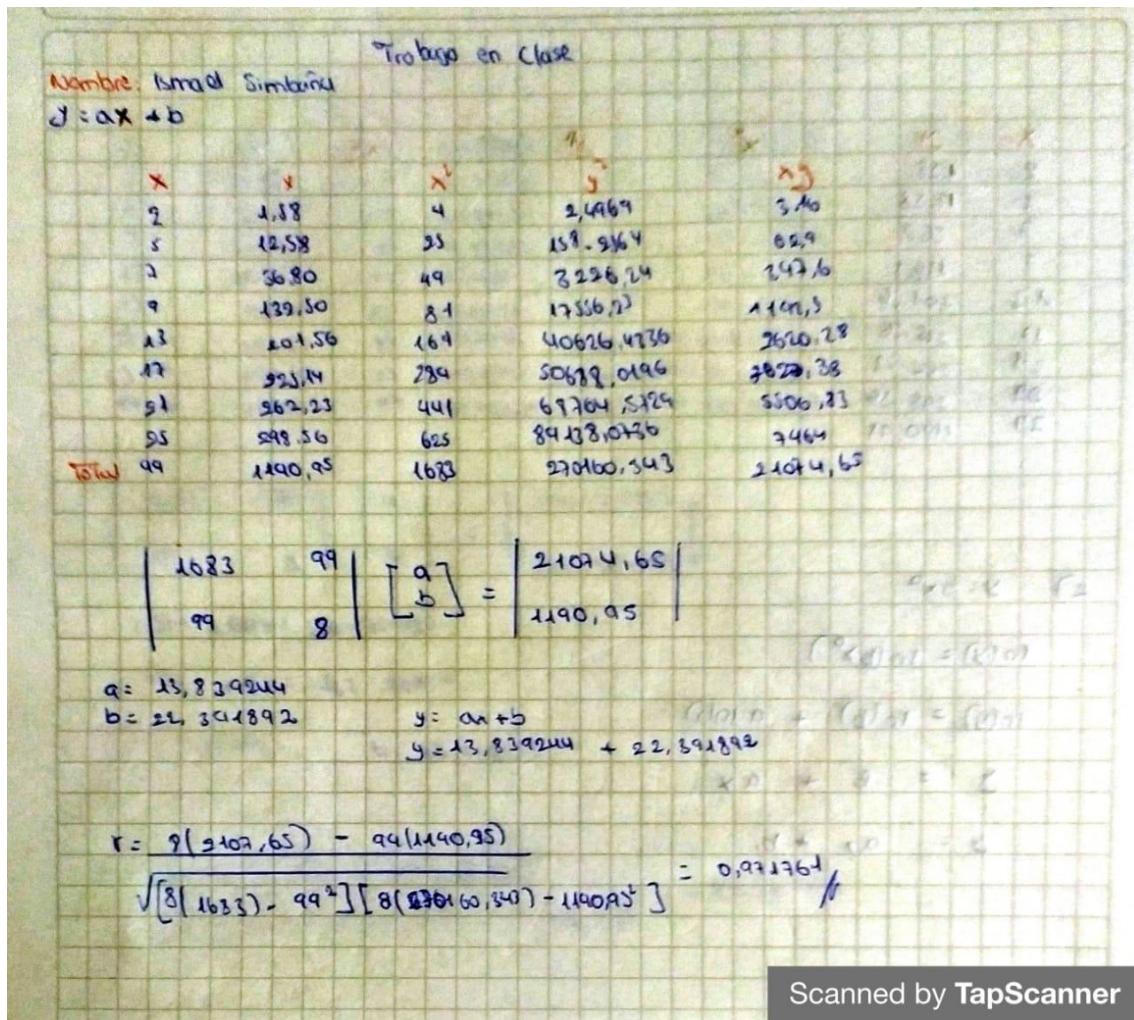 Trabajo en Clase
Nombre: Ismael Simbaña
y = ax + b
x y x² y² xy
2 1,58 4 2,4964 3,16
5 12,58 25 158.2564 62,9
7 36.80 49
9 139,50 81
13 201,56 169 40626,4336 2620,28
17 225,14 289 50688,0196 3827,38
21 262,23 441 68764,5729 5506,83
25 298.56 625 89138,0736 7464
Total 99 1190,95 1683 270160,343 21074,65
1683 99 [a b] = 21074,65
99 8 1190,95
a= 13,839244
b= 22,391892 y= ax+b
y=13,839244 + 22,391892
r= 8(2107,65) - 99(1190,95)
√[8(1633)- 99²][8(270160,343)-1190,95²] = 0,971761
Scanned by TapScanner